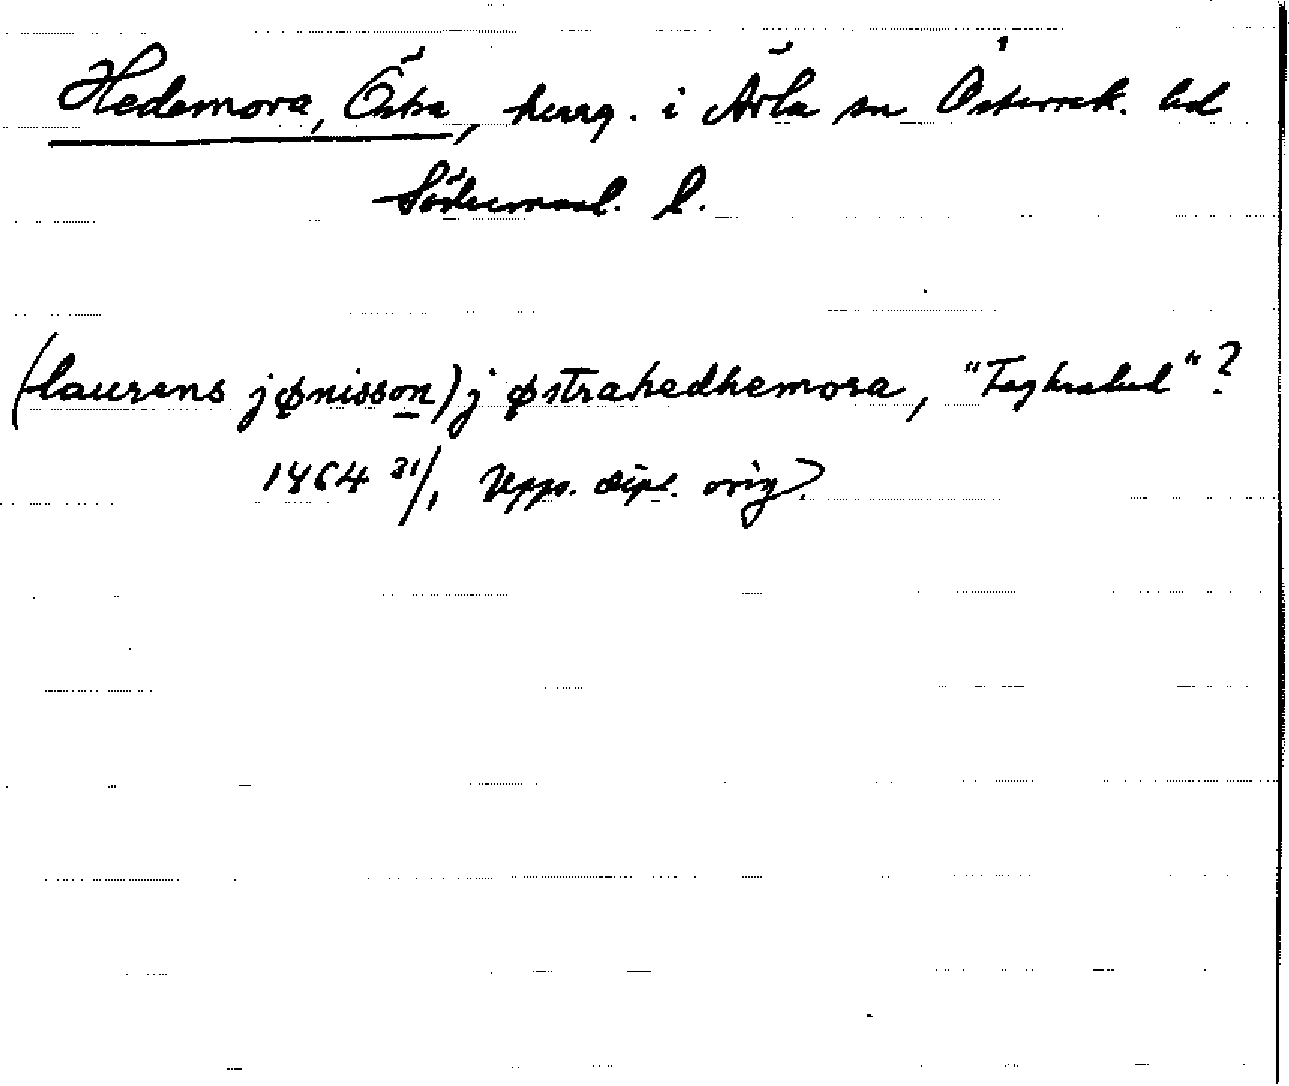 Hedemora, Östra, herrg. i Ärla sn Österrek. hd
Södermanl. l.
(laurens jønisson) j østrahedhemora, " "?
1464 21/1 Upps. dipl. orig?